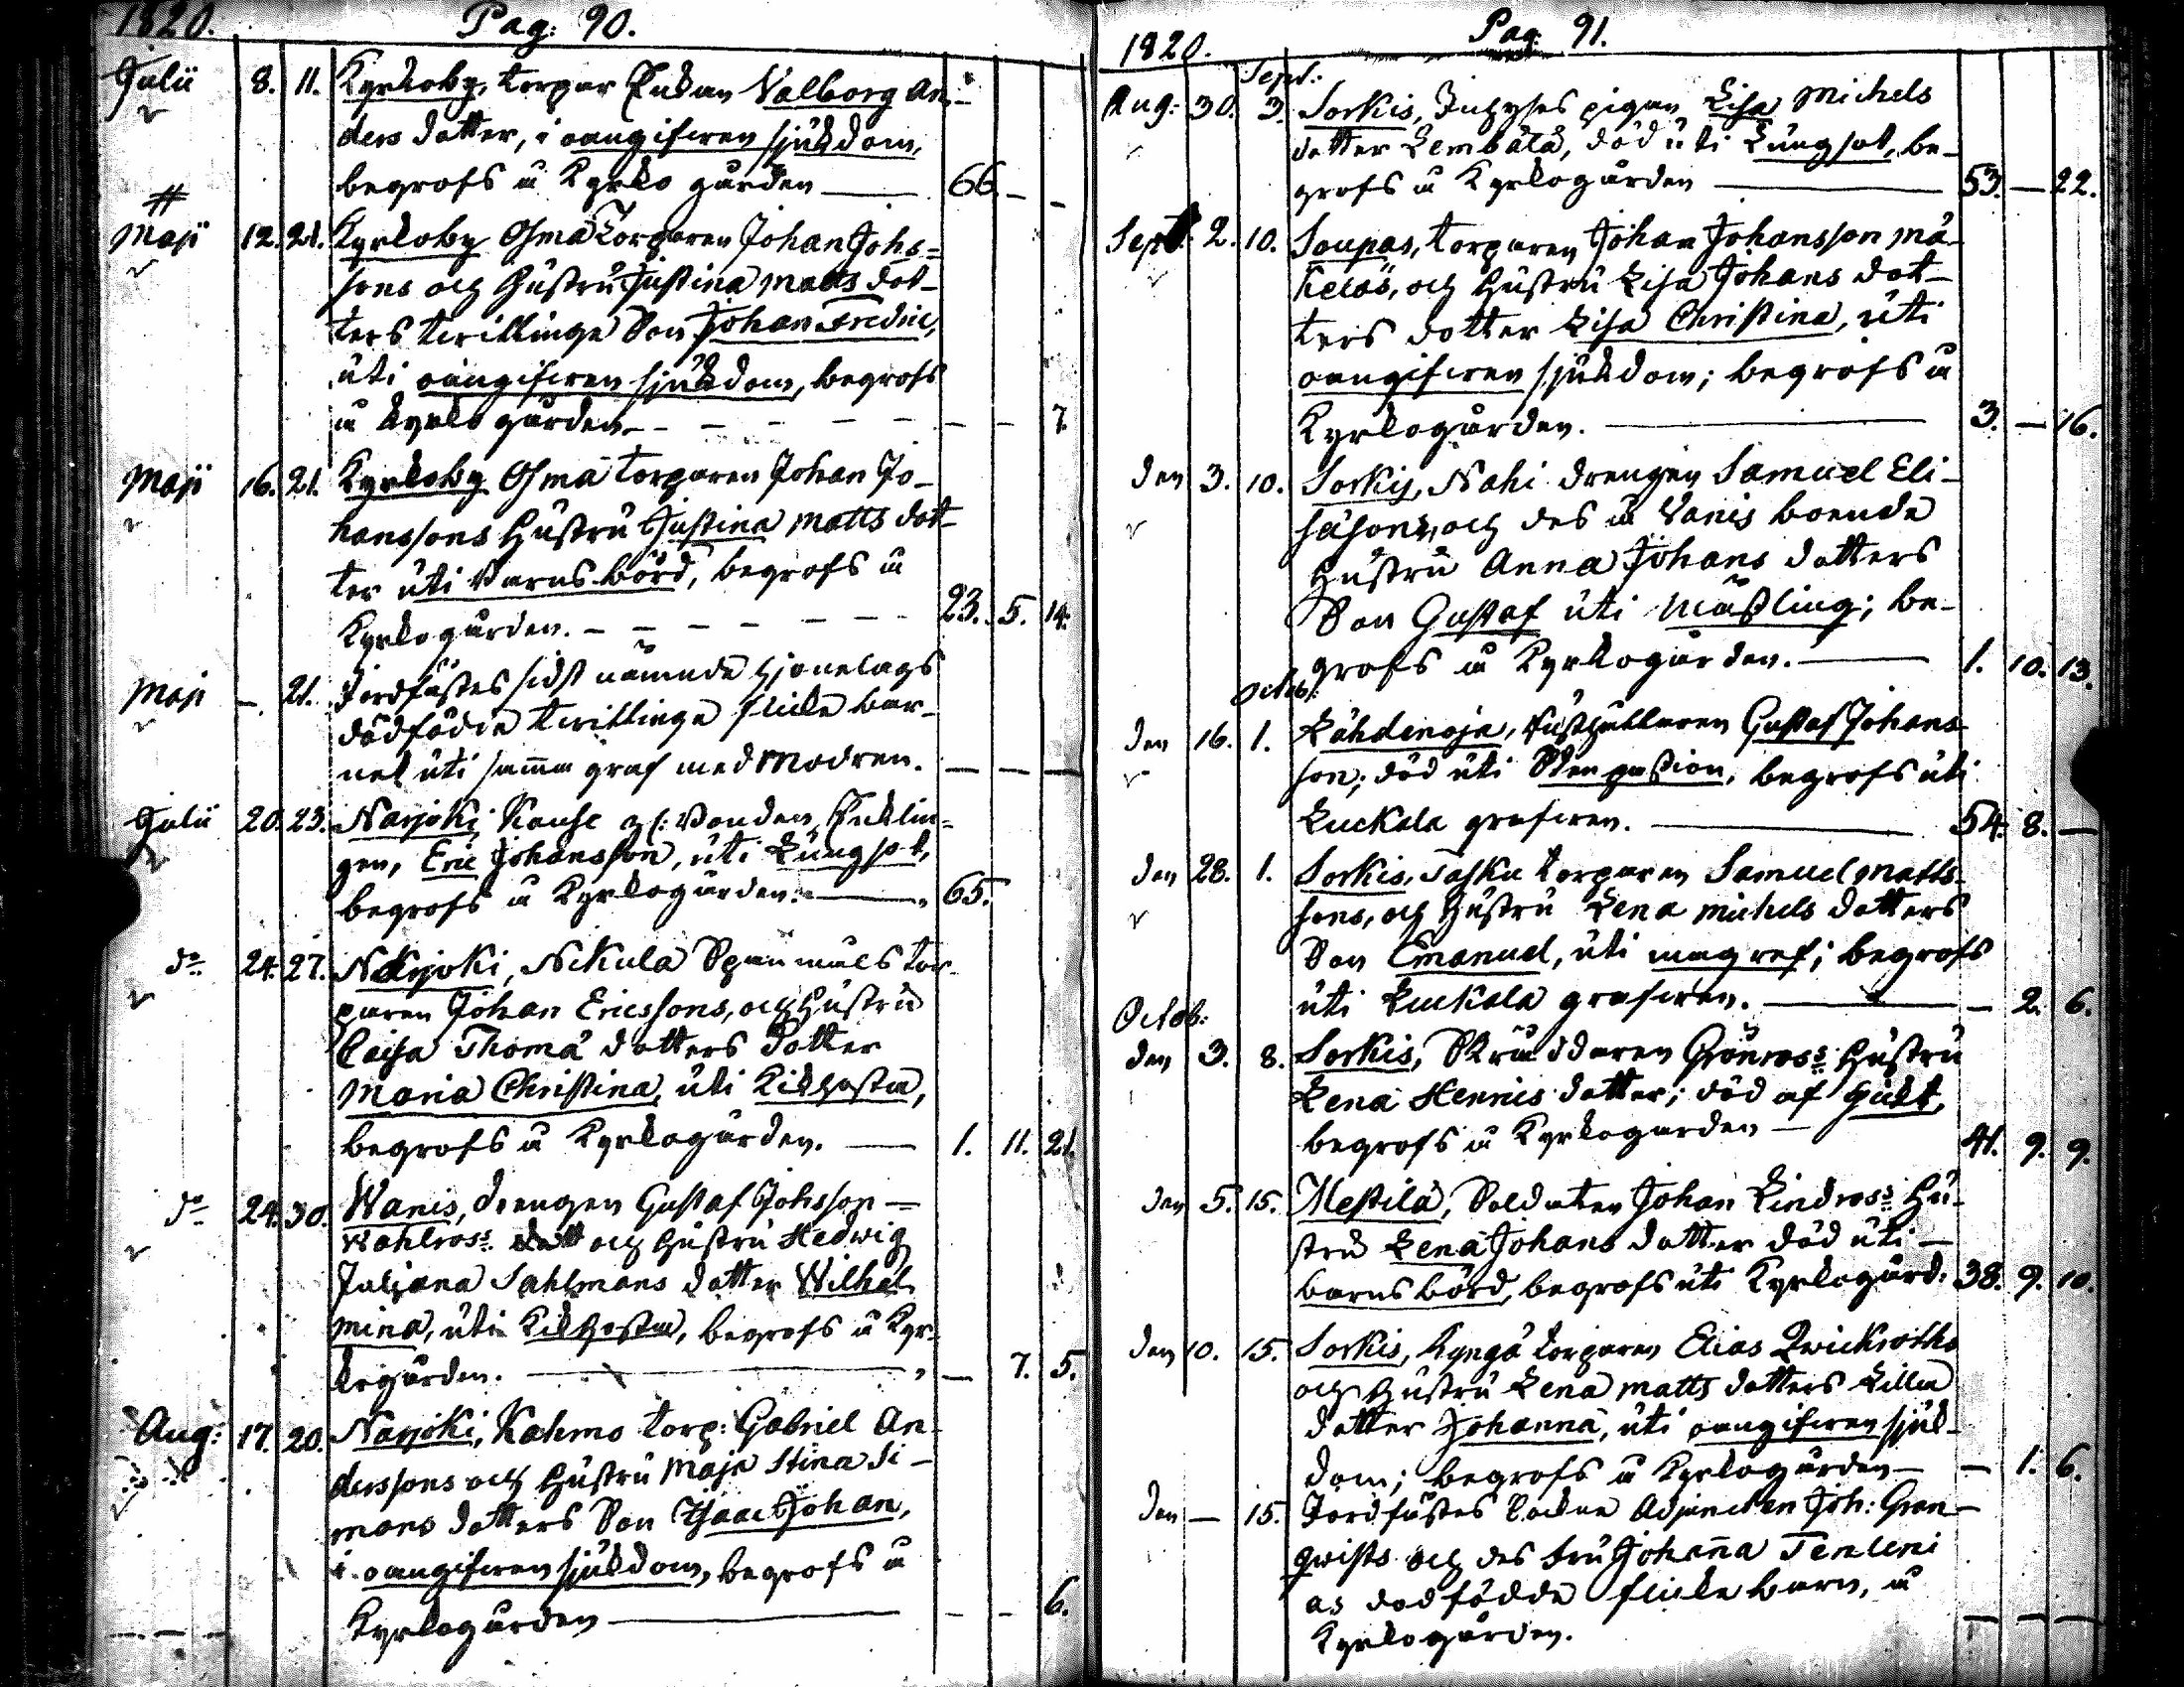 1820. Pag: 90.
Julii 8. 11. Kyrkoby, torpar Enkan Valborg An-
ders dotter, i oangifwen sjukdom,
begrofs å Kyrko gården 66. - -
Maji 12. 21. Kyrkoby Torparen Johan Johs=
sons och Hustru Justina Matts dot-
ters twillinge Son Johan Fredric,
uti oangifwen sjukdom, begrofs
å Kyrko gården - - 7.
Maji 16. 21. Kyrkoby torparen Johan Jo-
hanssons Hustru Justina Matts dot-
ter uti Barnsbörd, begrofs å
Kyrkogården. 23. 5. 14.
Maji -. 21. Jordfästes sidst nämnde hjonelags
dödfödde twillinge flicke bar-
net uti samma graf med Modren. - - -
Julii 20. 23. Narjoki, Kause Enklin-
gen, Eric Johansson, uti Lungsot,
begrofs å Kyrkogården: 65.
do 24. 27. Narjoki, Nikula Spanmåls tor-
paren Johan Ericssons, och Hustru
Caisa Thomæ dotters dotter
Maria Christina, uti Kikhosta,
begrofs å Kyrkogården. 1. 11. 21.
do 24. 30. Wanis, drengen Gustaf Johsson
och Hustru Hedwig
Juliana Sahlmans dotter Wilhel-
mina, uti Kikhosta, begrofs å Kyr-
kogården. - 7. 5.
Aug: 17. 20. Narjoki, Kahmo torp: Gabriel An-
derssons och Hustru Maja Stina Si-
mons dotters Son Isaac Johan,
i oangifwen sjukdom, begrofs å
Kyrkogården - - 6.
1820. Pag: 91.
Sept:
Aug: 30. 3. Sorkis, Inhyses pigan Lisa Michels
dotter Lembälä, död uti Lungsot, be-
grofs å Kyrkogården 53. - 22.
Sept: 2. 10. Soupas, torparen Johan Johansson Mä-
och Hustru Lisa Johans dot-
ters dotter Lisa Christina, uti
oangifwen sjukdom; begrofs å
Kyrkogården. 3. - 16.
den 3. 10. Sorkis, Nahi drengen Samuel Eli-
och des å Vanis boende
Hustru Anna Johans dotters
Son Gustaf uti Mäßling; be-
grofs å Kyrkogården. 1. 10. 13.
Octob:
den 16. 1. Lähdenoja, Rusthållaren Gustaf Johans-
son; död uti begrofs uti
Luckala grafwen. 54. 8. -
den 28. 1. Sorkis, Tasku torparen Samuel Matts-
sons, och Hustru Lena Michels dotters
Son Emanuel, uti magref; begrofs
uti Luckala grafwen. - 2. 6.
Octob:
den 3. 8. Sorkis, Skräddaren Grönross: Hustru
Lena Henrics dotter; död af
begrofs å Kyrkogården 41. 9. 9.
den 5. 15. Mestilä, Soldaten Johan Lindross: Hu-
stru Lena Johans dotter död uti
barnsbörd, begrofs uti Kyrkogård: 38. 9. 10.
den 10. 15. Sorkis, torparen Elias Qwickroths
och Hustru Lena Matts dotters Lilla
dotter Johanna, uti oangifwen sjuk-
dom; begrofs å Kyrkogården - 1. 6.
den - 15. Jordfästes Sockne Adjuncten Joh: Gran-
qwists och des fru Johanna Tenleni
as dödfödda flicke barn, å
Kyrkogården. - - -